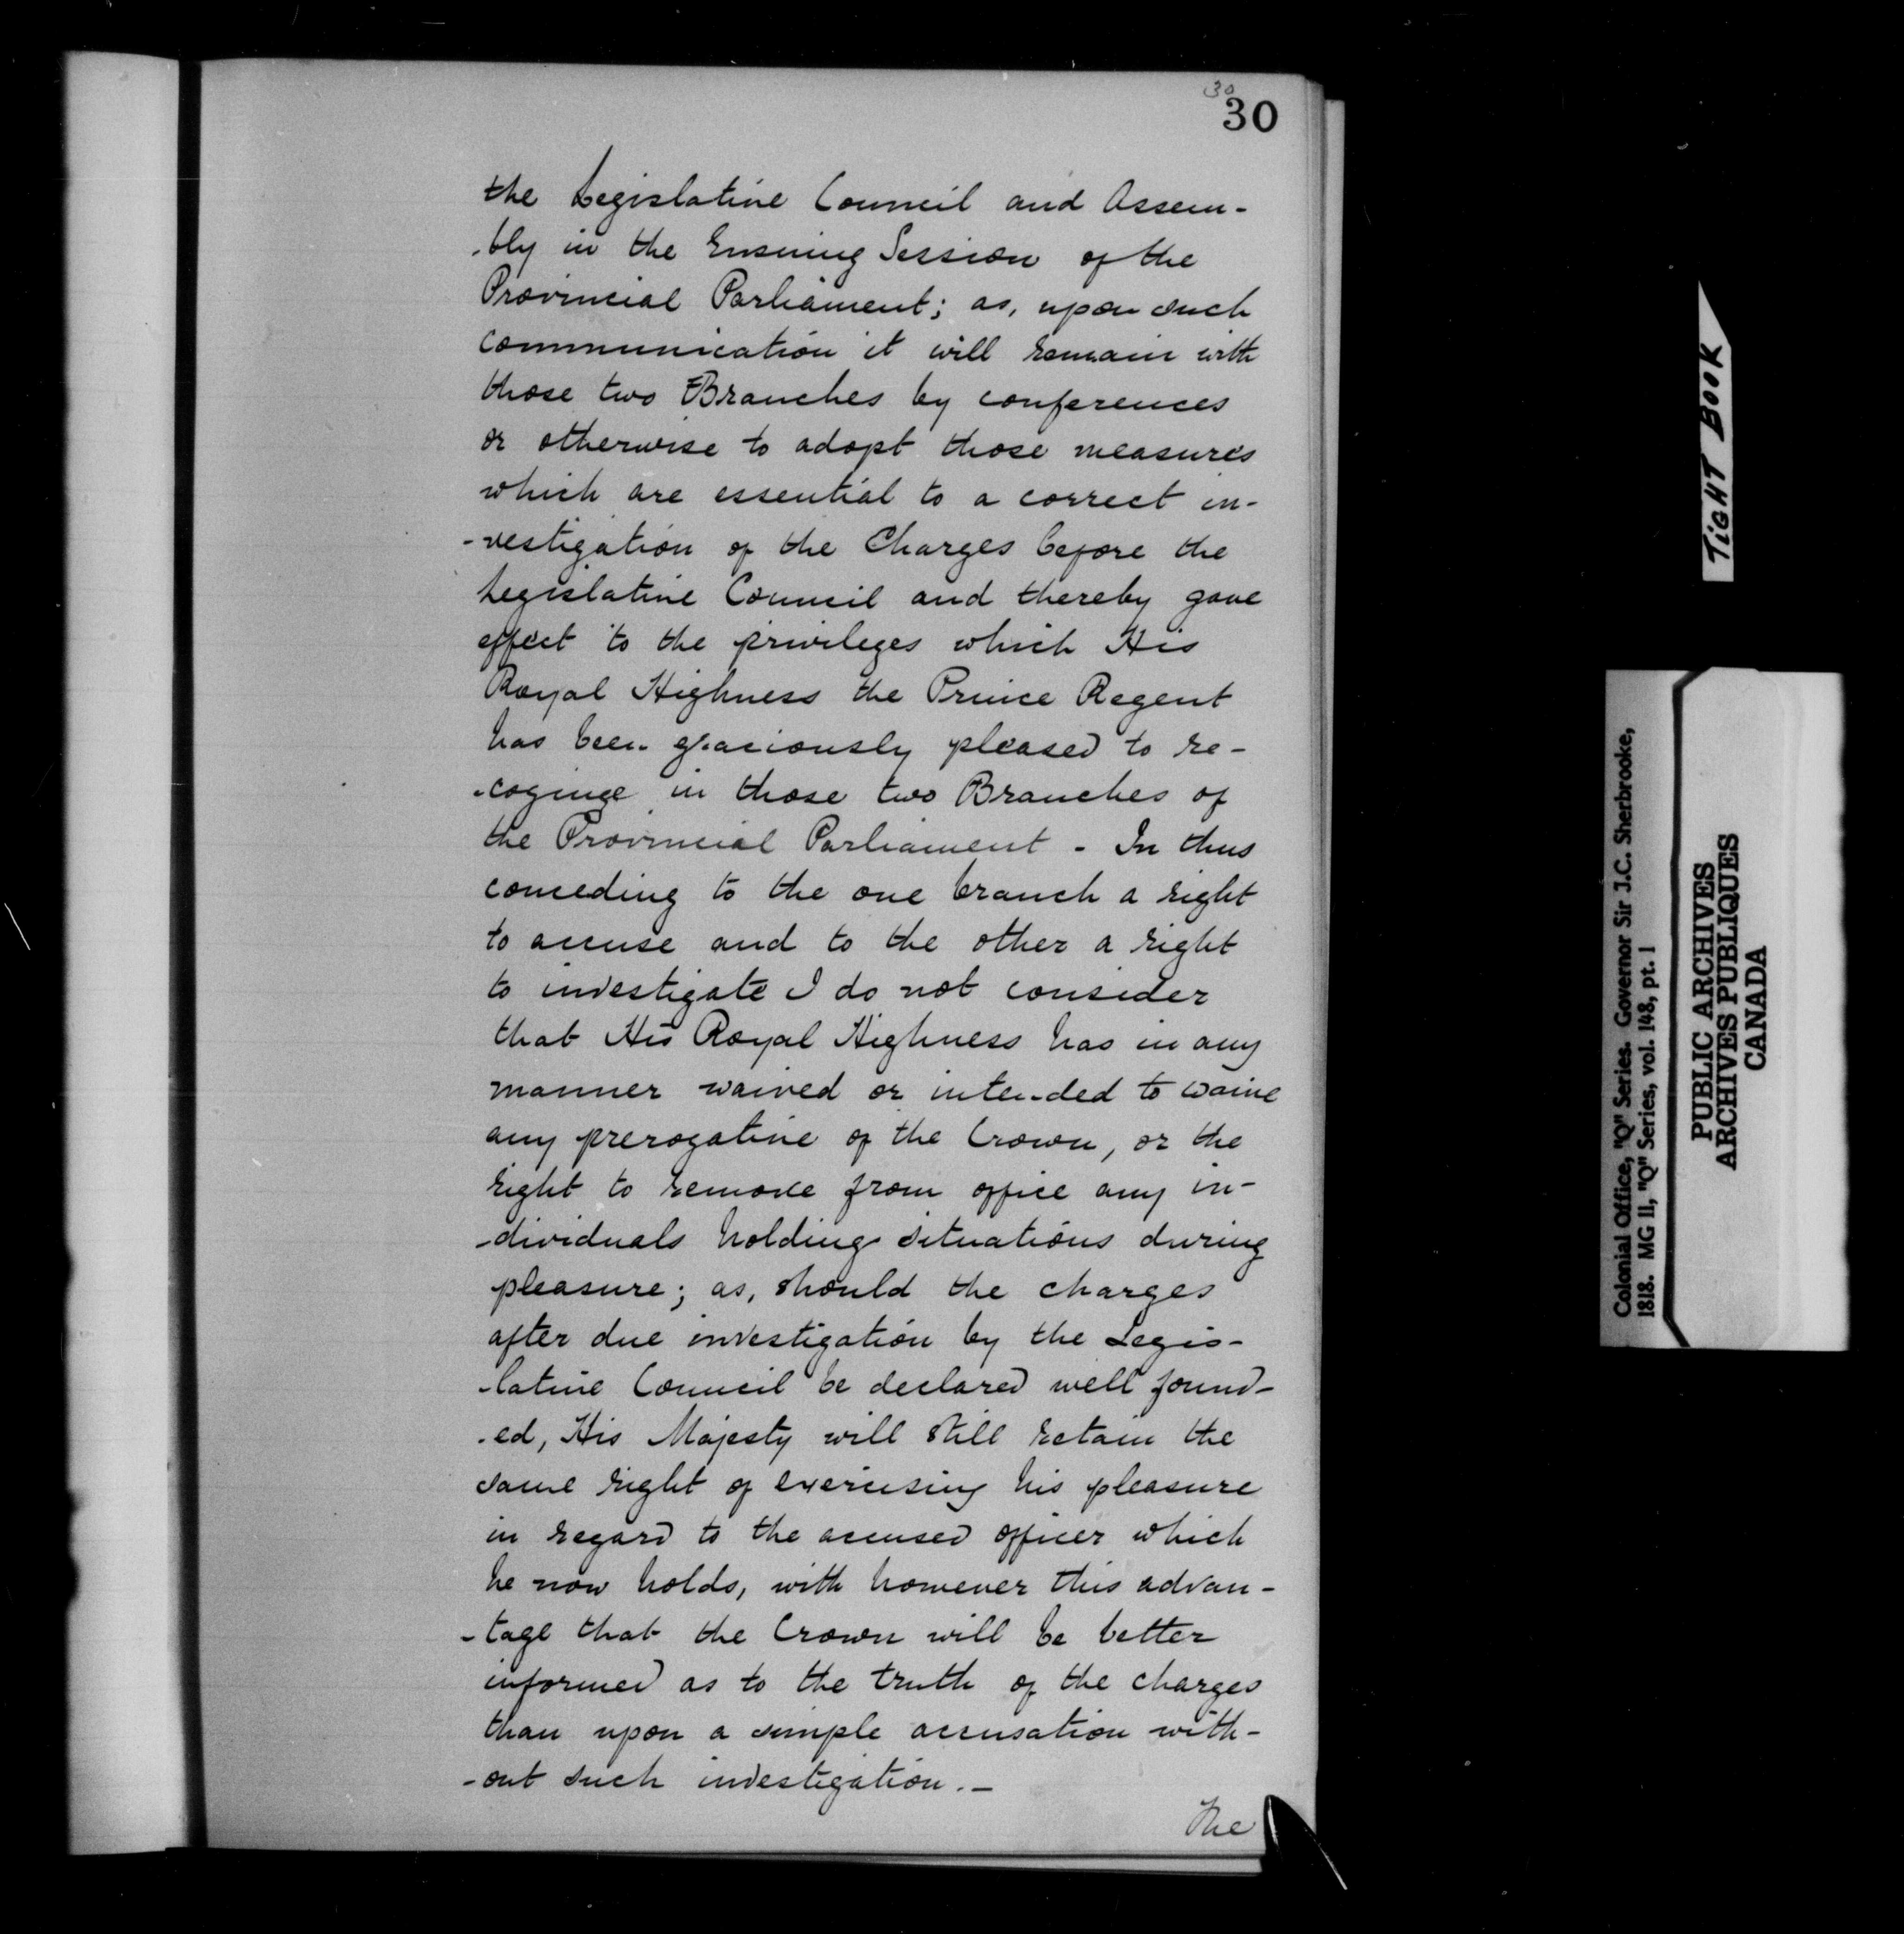 30
30
the Legislative Council and Assem-
-bly in the Ensuing Session of the
Provincial Parliament; as, upon such
communication it will remain with
those two Branches by conferences
or otherwise to adopt those measures
which are essential to a correct in-
-vestigation of the Charges before the
Legislative Council and thereby gave
effect to the privileges which His
Royal Highness the Prince Regent
has been graciously pleased to re-
-cognize in those two Branches of
the Provincial Parliament - In thus
conceding to the one branch a right
to accuse and to the other a right
to investigate I do not consider
that His Royal Highness has in any
manner waived or intended to waive
any prerogative of the Crown, or the
right to remove from office any in-
-dividuals holding situations during
pleasure; as, should the charges
after due investigation by the Legis-
-lative Council be declared well found-
-ed, His Majesty will still retain the
same right of exercising his pleasure
in regard to the accused officer which
he now holds, with however this advan-
-tage that the Crown will be better
informed as to the truth of the charges
than upon a simple accusation with-
-out such investigation.-
The
TIGHT BOOK
Colonial Office, "Q" Series. Governor Sir J.C. Sherbrooke,
1818. MG 11, "Q" Series, vol. 148, pt. 1
PUBLIC ARCHIVES
ARCHIVES PUBLIQUES
CANADA